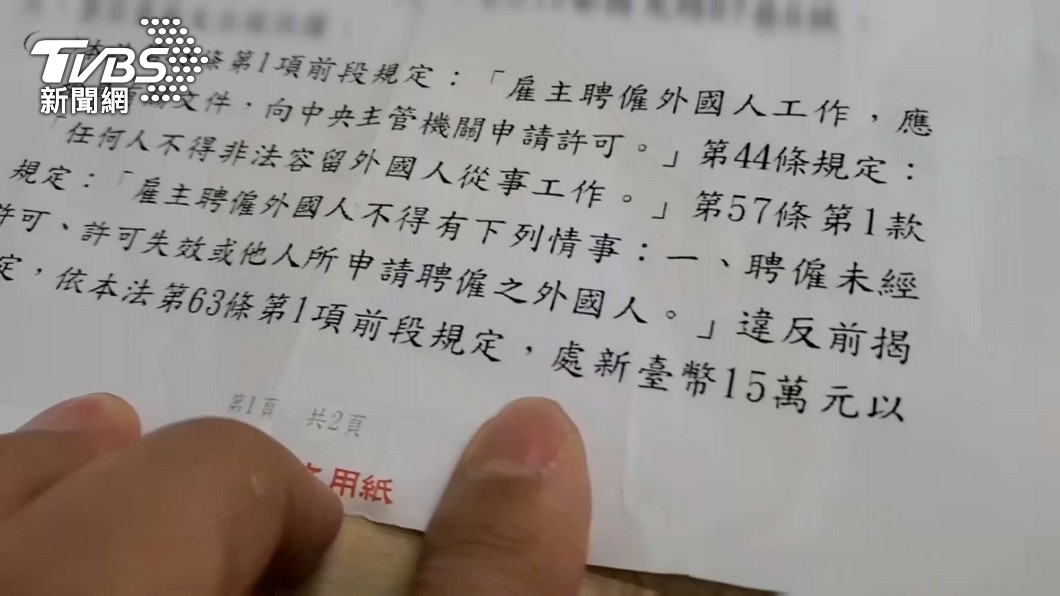 TVBS
新聞網
條第1項前段規定：「雇主聘僱外國人工作，應
文件，向中央主管機關申請許可。」第44條規定：
「任何人不得非法容留外國人從事工作。」第57條第1款
規定：「雇主聘僱外國人不得有下列情事：一、聘僱未經
許可、許可失效或他人所申請聘僱之外國人。」違反前揭
定，依本法第63條第1項前段規定，處新臺幣15萬元以
第1頁 共2頁
用紙